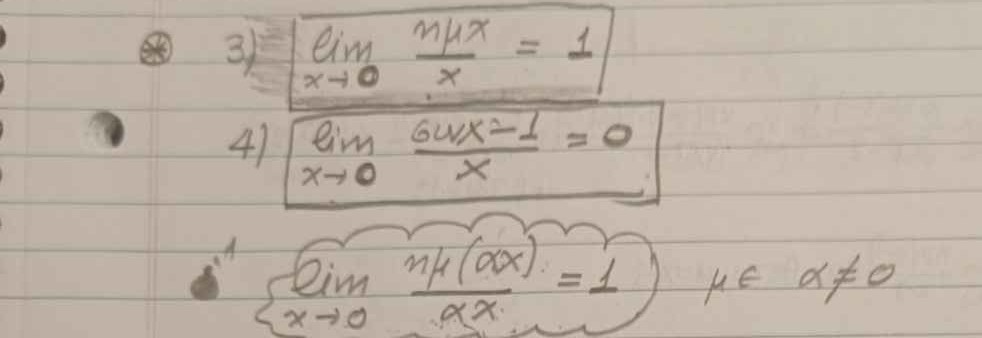 3) lim x→0 ημx/x = 1
4) lim x→0 (συνx-1)/x = 0
1 lim x→0 ημ(αx)/αx = 1 με α≠0